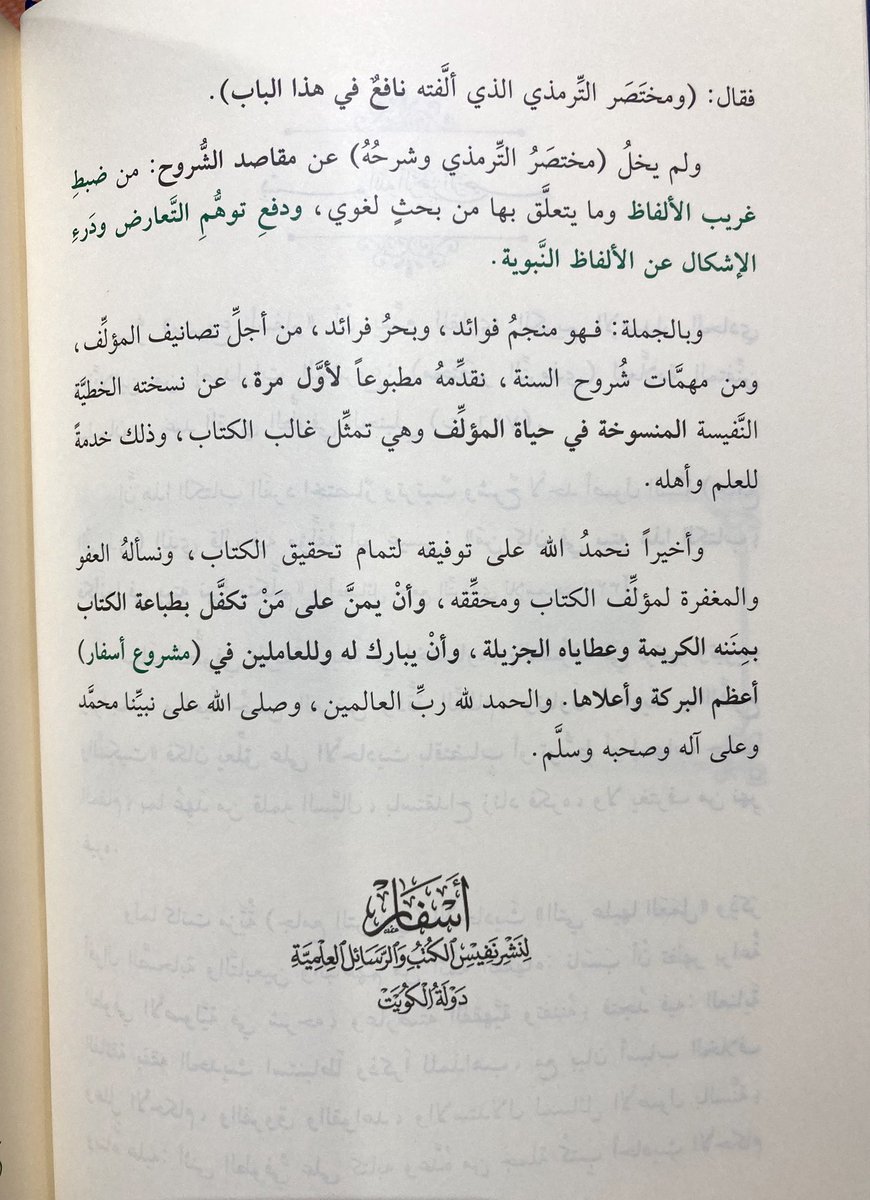 فقال: (ومختَصَر التِّرمذي الذي ألَّفته نافعٌ في هذا الباب).
ولم يخلُ (مختصَرُ التِّرمذي وشرحُهُ) عن مقاصد الشُّروح: من ضبطِ
غريب الألفاظ وما يتعلَّق بها من بحثٍ لغوي، ودفعِ توهُّمِ التَّعارض ودَرءِ
الإشكال عن الألفاظ النَّبوية.
وبالجملة: فـهو منجمُ فوائد، وبحرُ فرائد، من أجلِّ تصانيف المؤلِّف،
ومن مهمَّات شُروح السنة، نقدِّمهُ مطبوعاً لأوَّل مرة، عن نسخته الخطيَّة
النَّفيسة المنسوخة في حياة المؤلِّف وهي تمثِّل غالب الكتاب، وذلك خدمةً
للعلم وأهله.
وأخيراً نحمدُ الله على توفيقه لتمام تحقيق الكتاب، ونسألهُ العفو
والمغفرة لمؤلِّف الكتاب ومحقِّقه، وأنْ يمنَّ على مَنْ تكفَّل بطباعة الكتاب
بمِنَنه الكريمة وعطاياه الجزيلة، وأنْ يبارك له وللعاملين في (مشروع أسفار)
أعظم البركة وأعلاها. والحمد لله ربِّ العالمين، وصلى الله على نبيِّنا محمَّد
وعلى آله وصحبه وسلَّم.
أَسْفَار
لِنَشْرِ نَفِيسِ الْكُتُبِ وَالرَّسَائِلِ الْعِلْمِيَّةِ
دَوْلَةُ الْكُوَيْتِ